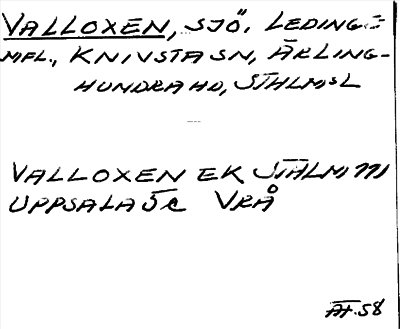 VALLOXEN, SJÖ, LEDINGE=
MFL., KNIVSTA SN, ÄRLING-
HUNDRA HD, STHLMS L
VALLOXEN EK STHLM 111
UPPSALA 5c VRÅ
ÄT.58